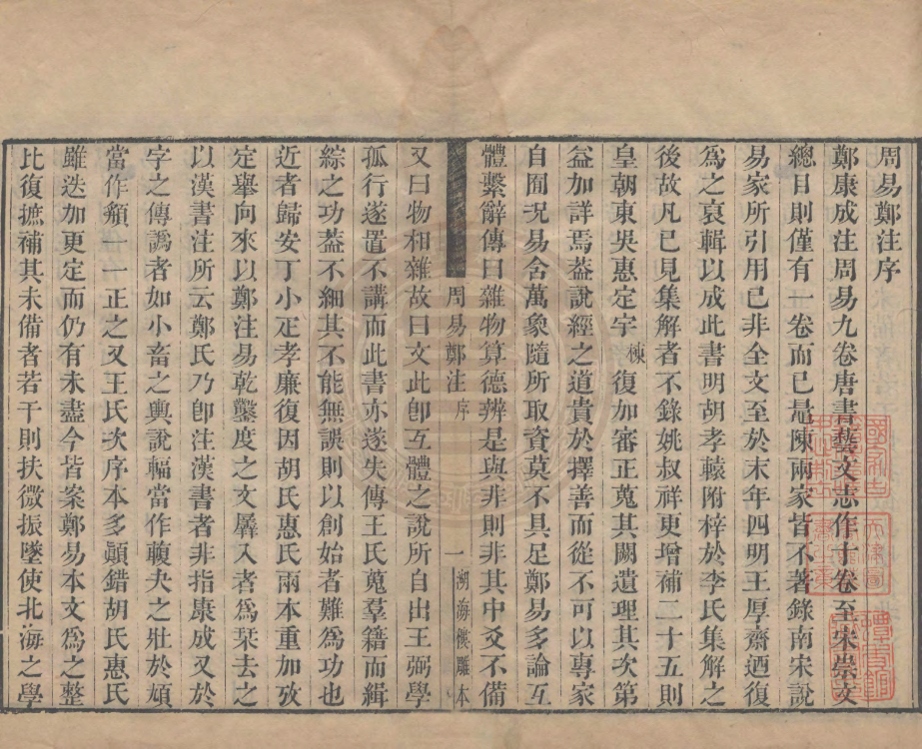 周易鄭注序
鄭康成注周易九卷唐書藝文志作十卷至宋崇文
總目則僅有一卷而已晁陳兩家皆不著錄南宋說
易家所引用已非全文至於末年四明王厚齋迺復
爲之裒輯以成此書明胡孝轅附梓於李氏集解之
後故凡已見集解者不錄姚叔祥更增補二十五則
皇朝東吳惠定宇棟復加審正蒐其闕遺理其次第
益加詳焉葢說經之道貴於擇善而從不可以專家
自囿況易含萬象隨所取資莫不具足鄭易多論互
體繫辭傳曰雜物算德辨是與非則非其中爻不備
周易鄭注 序 一 湖海樓雕本
又曰物相雜故曰文此卽互體之說所自出王弼學
孤行遂置不講而此書亦遂失傳王氏蒐羣籍而緝
綜之功葢不細其不能無誤則以創始者難爲功也
近者歸安丁小疋孝廉復因胡氏惠氏兩本重加攷
定舉向來以鄭注易乾鑿度之文羼入者爲栞去之
以漢書注所云鄭氏乃卽注漢書者非指康成又於
字之傳譌者如小畜之輿說輻當作輹夬之壯於頄
當作頯一一正之又王氏次序本多顚錯胡氏惠氏
雖迭加更定而仍有未盡今皆案鄭易本文爲之整
比復摭補其未備者若干則扶微振墜使北海之學